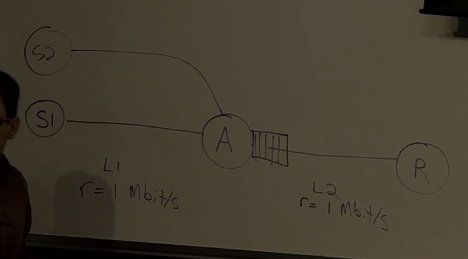 S2
S1
A
R
L1
r = 1 Mbit/s
L2
r = 1 Mbit/s